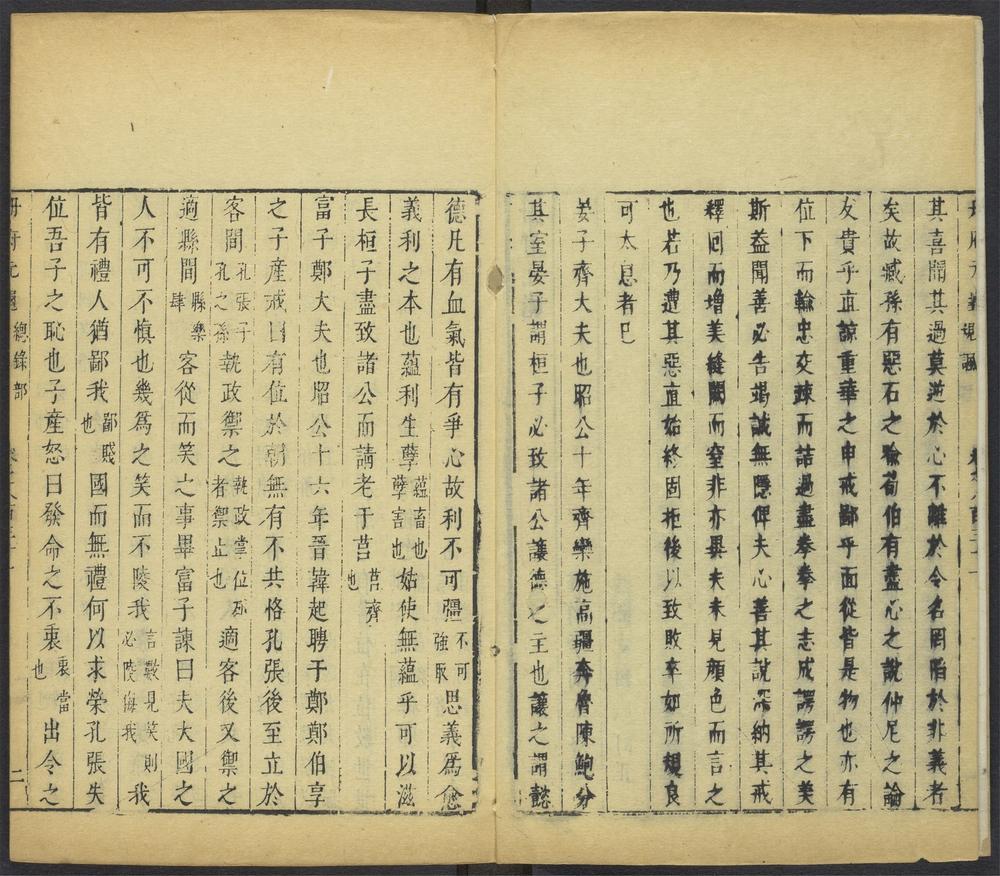 其喜聞其過莫逆於心不離於令名罔陷於非義者
矣故臧孫有惡石之喻荀伯有盡心之說仲尼之論
友貴乎直諒重華之申戒鄙乎面從皆是物也亦有
位下而輸忠交疎而詰過盡拳拳之志成諤諤之美
斯益聞善必告竭誠無隱俾夫心善其說深納其戒
釋回而增美縫闕而窒非亦異夫未見顏色而言之
也若乃遭其惡直始終固拒後以致敗卒如所規良
可太息者巳
晏子齊大夫也昭公十年齊欒施高彊奔魯陳鮑分
其室晏子謂桓子必致諸公讓德之主也讓之謂懿
德凡有血氣皆有爭心故利不可彊不可強取思義爲愈
義利之本也蘊利生孽蘊畜也孽害也姑使無蘊乎可以滋
長桓子盡致諸公而請老于莒莒齊也
富子鄭大夫也昭公十六年晉韓起聘于鄭鄭伯享
之子產戒曰有位於朝無有不共恪孔張後至立於
客間孔張子孔之孫執政禦之執政掌位列者禦止也適客後又禦之
適縣間縣樂肆客從而笑之事畢富子諫曰夫大國之
人不可不慎也幾爲之笑而不陵我言數見笑則必陵侮我我
皆有禮人猶鄙我鄙賤也國而無禮何以求榮孔張失
位吾子之恥也子產怒曰發命之不衷衷當也出令之
冊府元龜總錄部
二